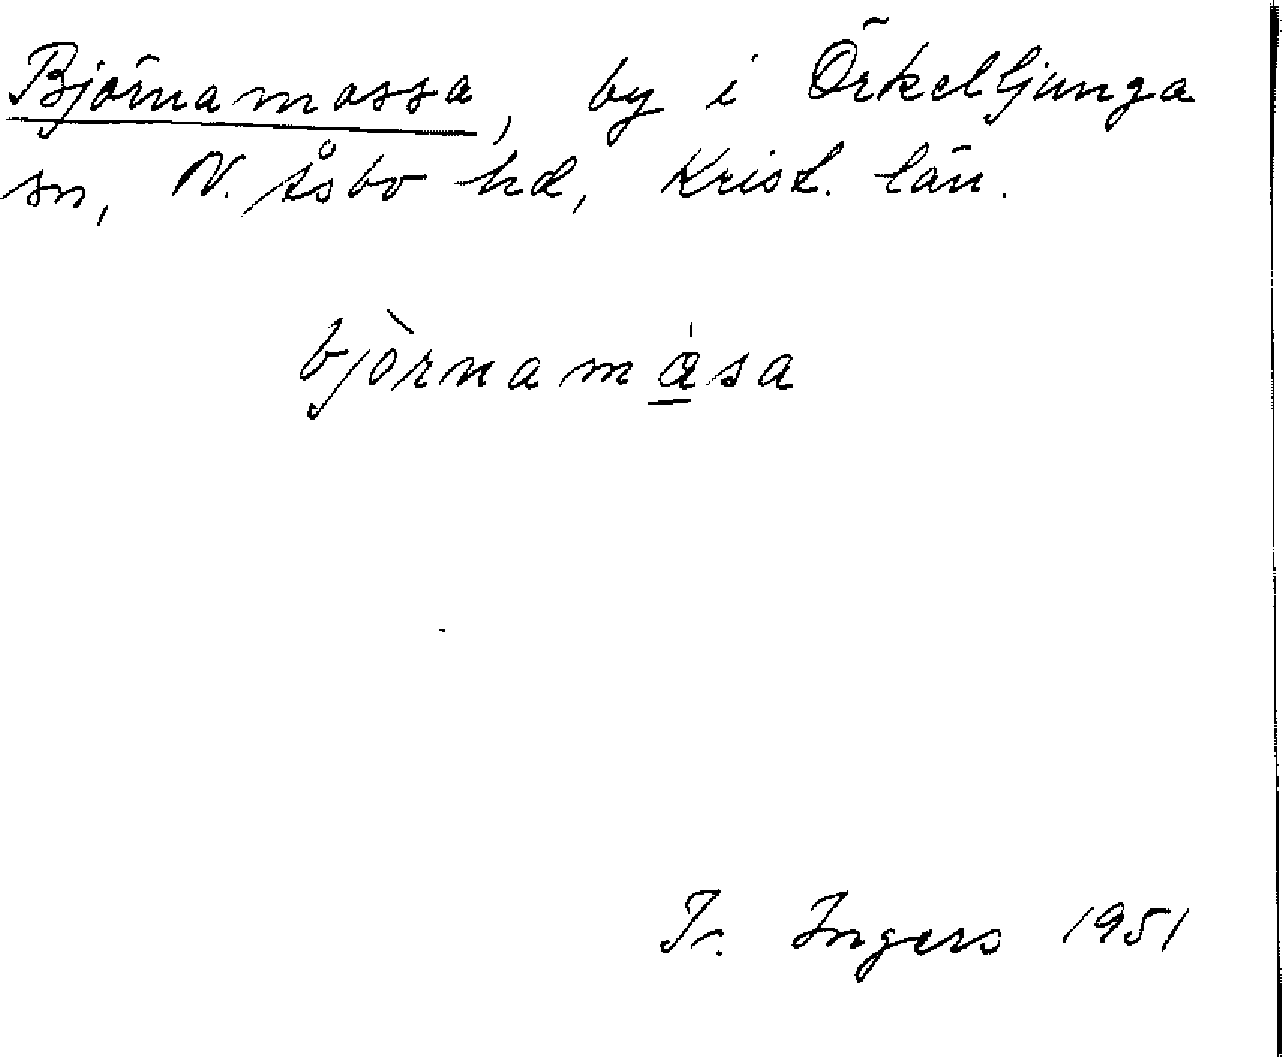 Björnamossa, by i Örkelljunga
sn, N. Åsbo hd, Krist. län.
bjö̀rnamåsa
Ingers 1951